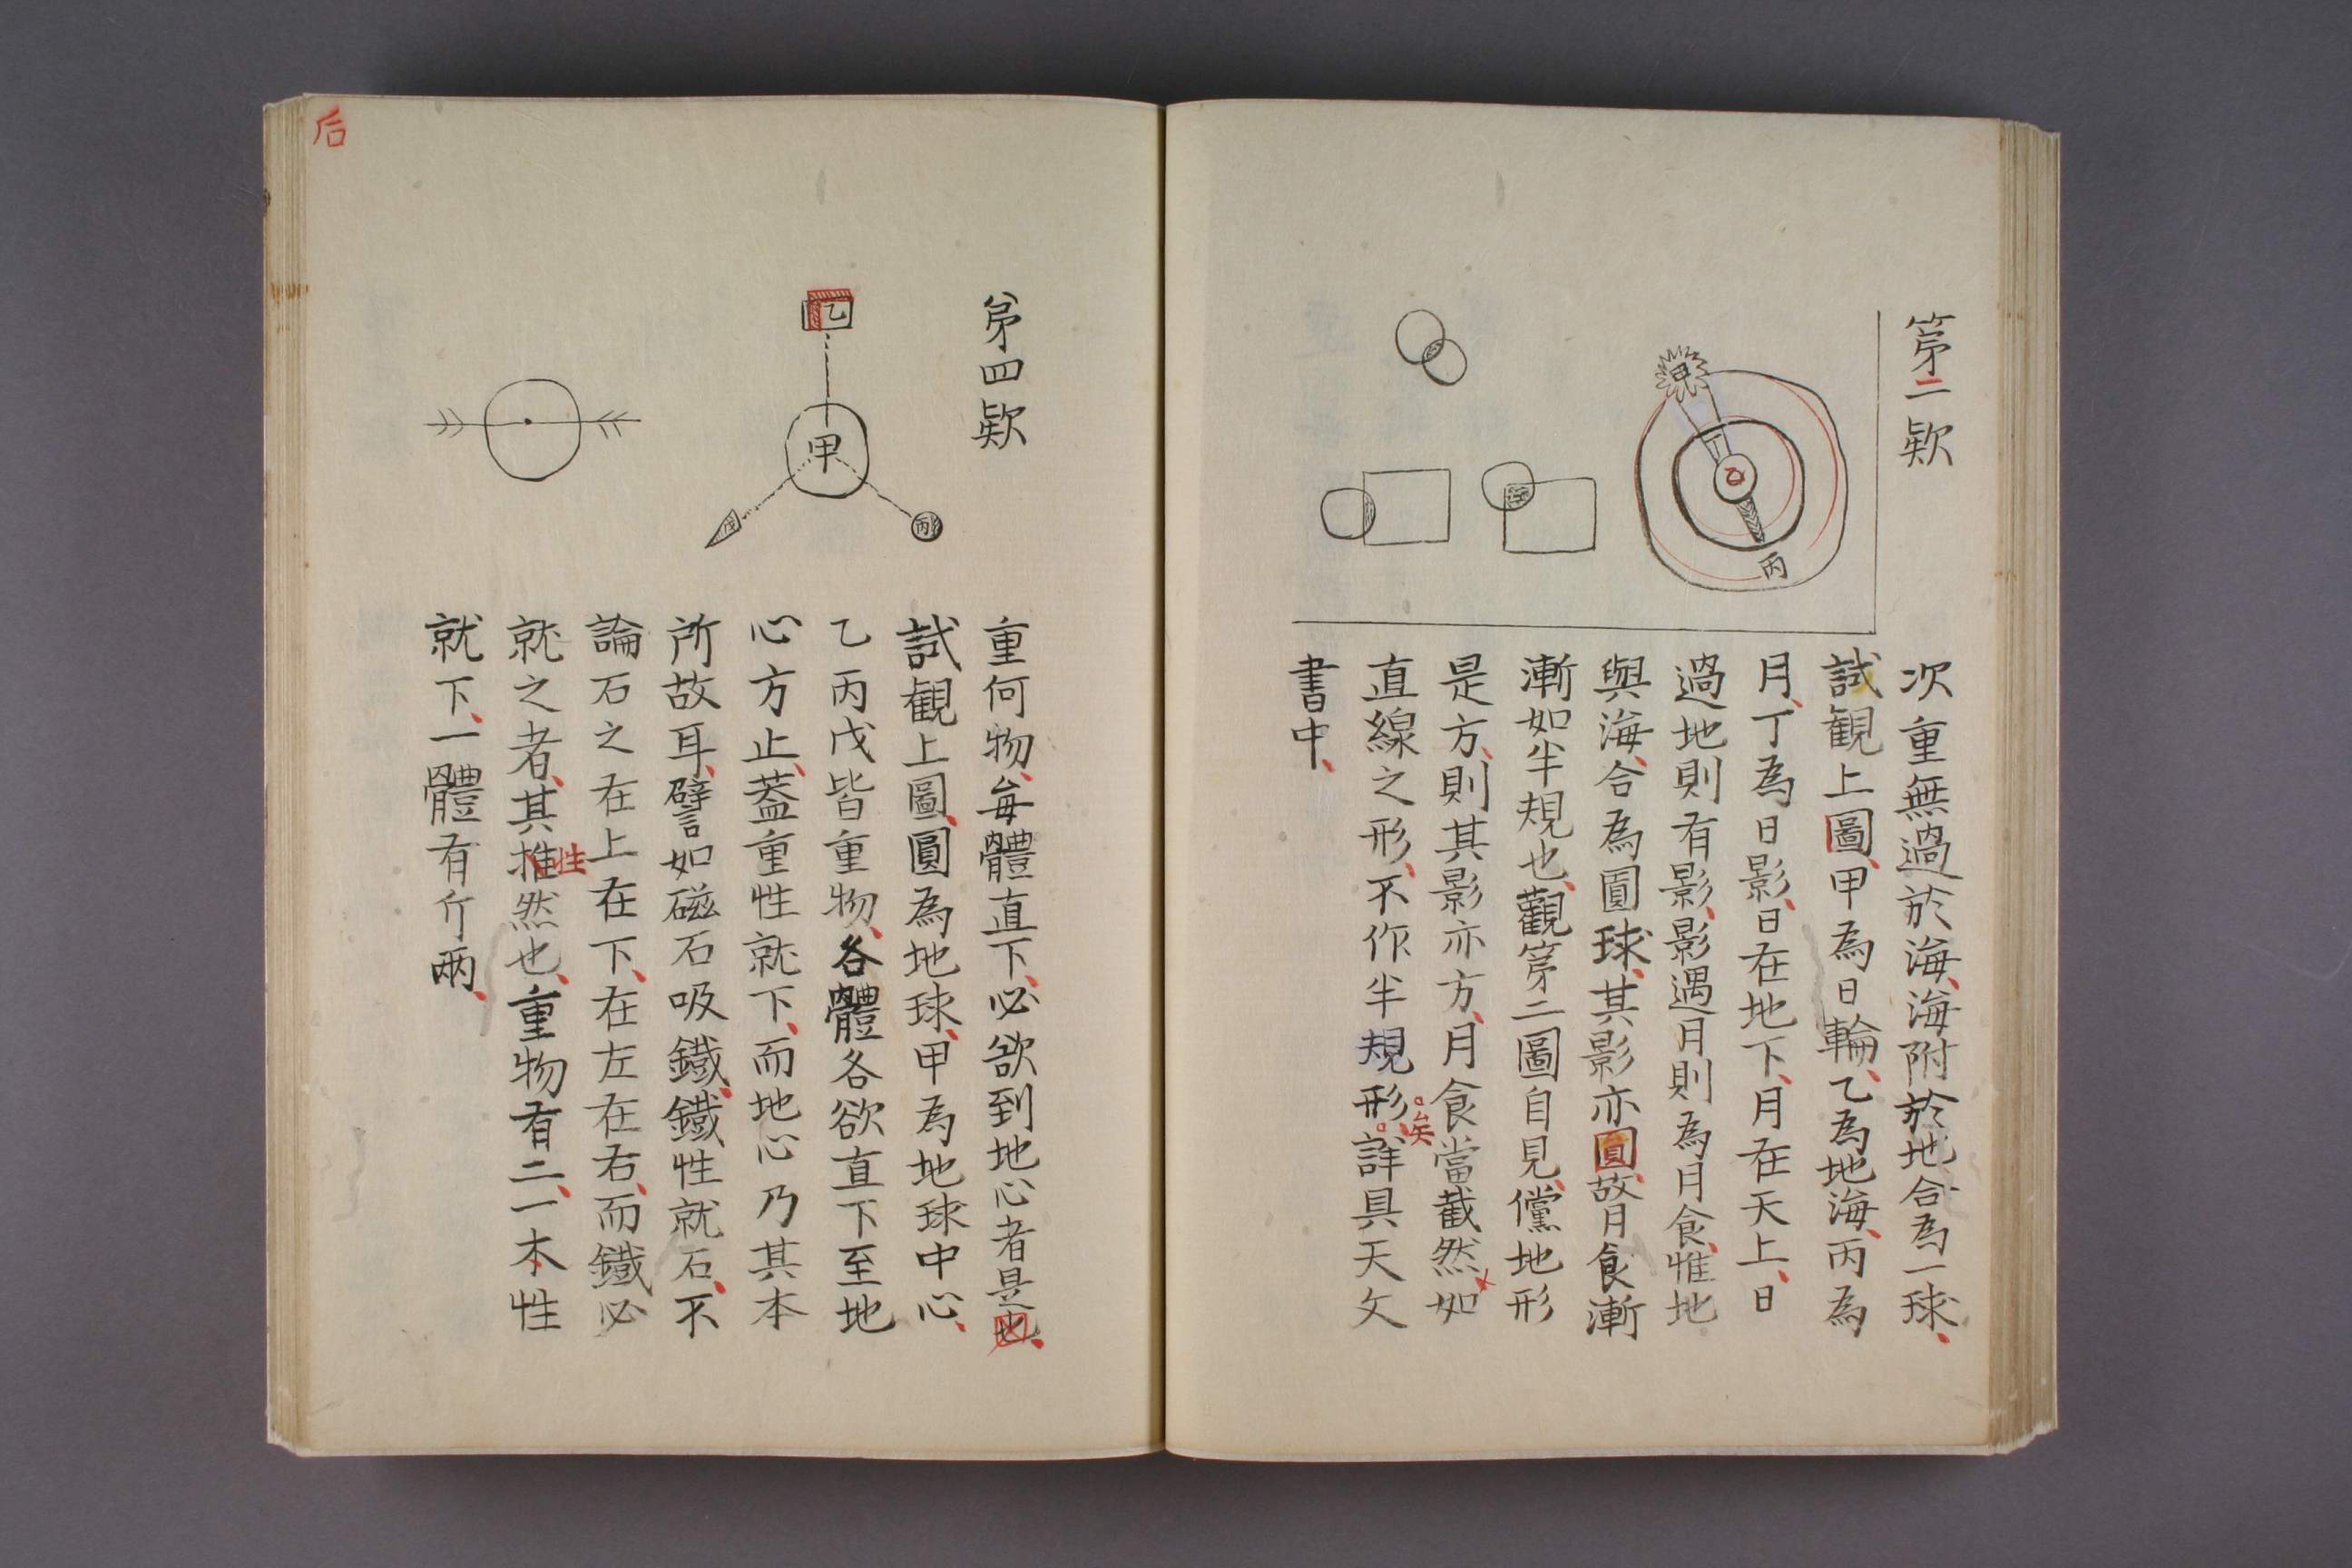 第二欵
甲
丁
乙
丙
次重無過於海、海附於地合為一球、
試觀上圖、甲為日輪、乙為地海、丙為
月、丁為日影、日在地下、月在天上、日
過地則有影、影遇月則為月食、惟地
與海、合為圓球、其影亦圓、故月食漸
漸如半規也、觀第二圖自見、儻地形
是方、則其影亦方、月食當截然如
直線之形、不作半規形、詳具天文
矣
書中、
第四欵
乙
甲
丙
戊
重何物、每體直下、必欲到地心者是也、
試觀上圖、圓為地球、甲為地球中心、
乙丙戊皆重物、各體各欲直下至地
心方止、蓋重性就下、而地心乃其本
所故耳、譬如磁石吸鐵、鐵性就石、不
論石之在上在下、在左在右、而鐵必
就之者、其推然也、重物有二、一本性
性
就下、一體有斤兩、
后